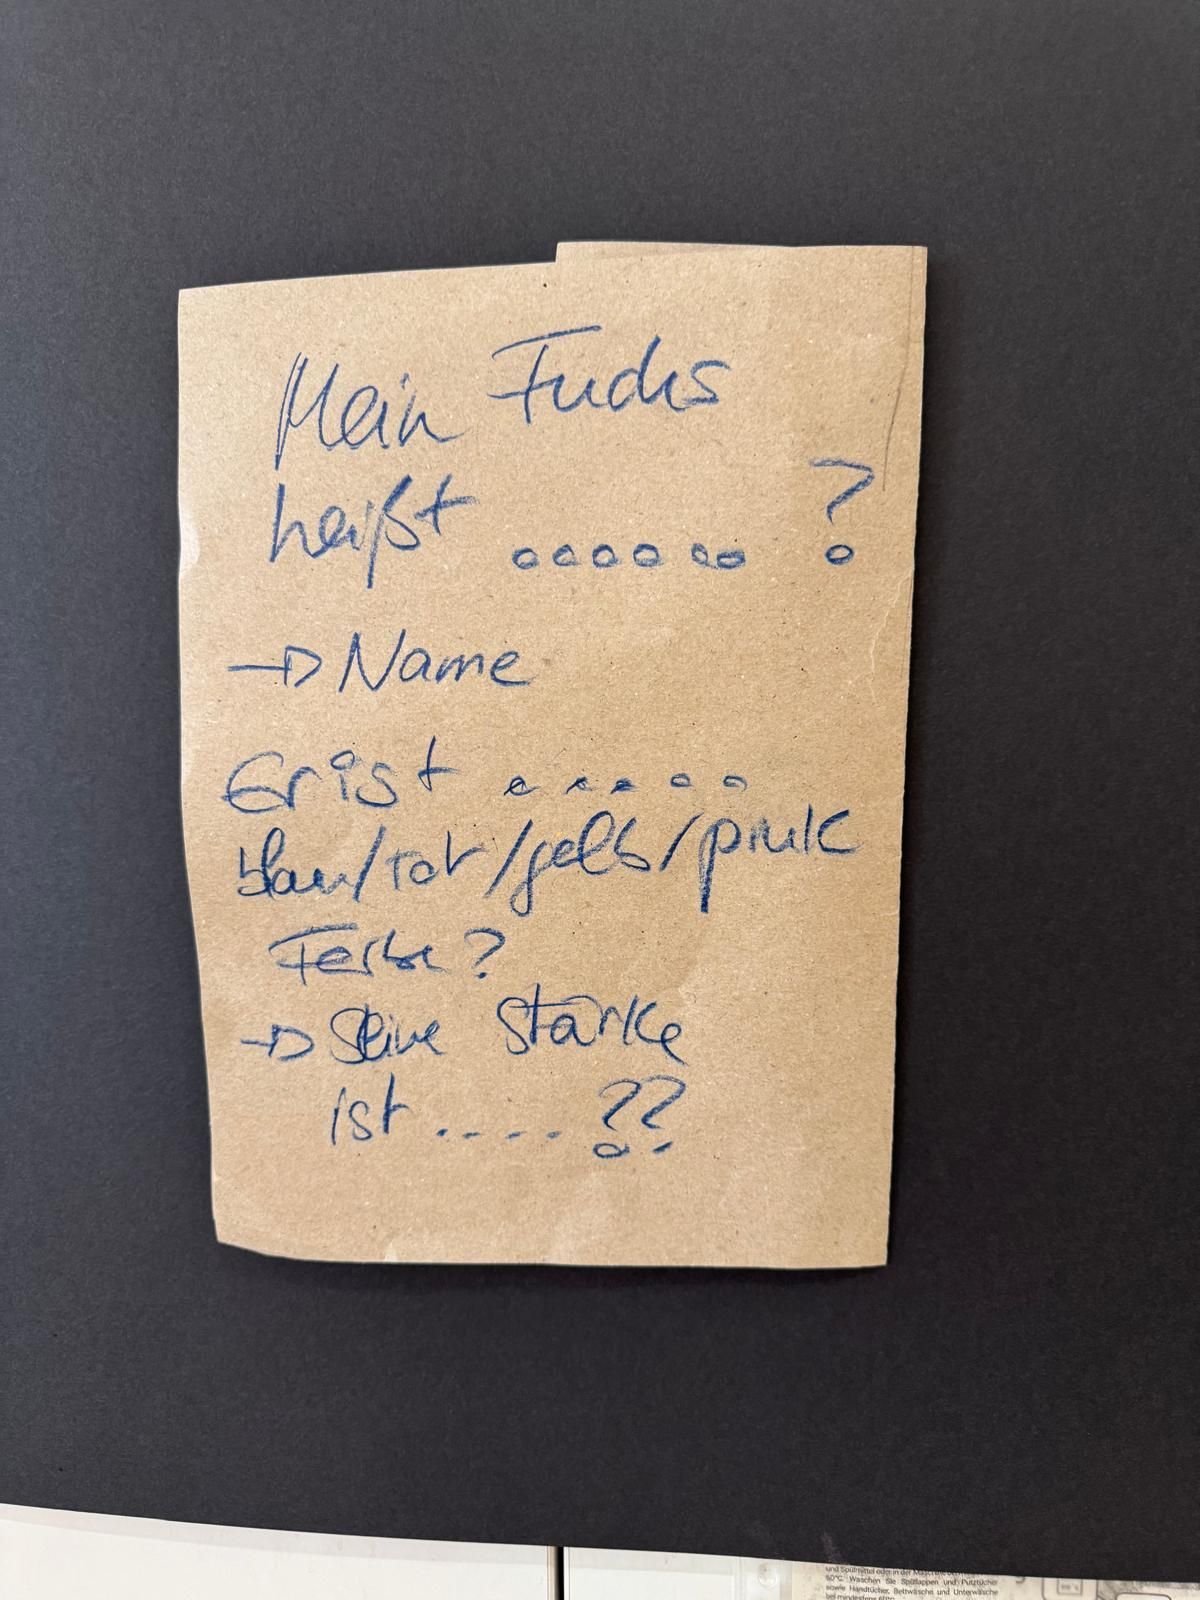 Mein Fuchs
heißt ....... ?
→ Name
Er ist .....
blau/rot/gelb/pink
Farbe?
→ Seine Stärke
ist .... ??
und Spülmittel oder in der
60°C. Waschen Sie Spüllappen und Putztücher
sowie Handtücher, Bettwäsche und Unterwäsche
bei mindestens